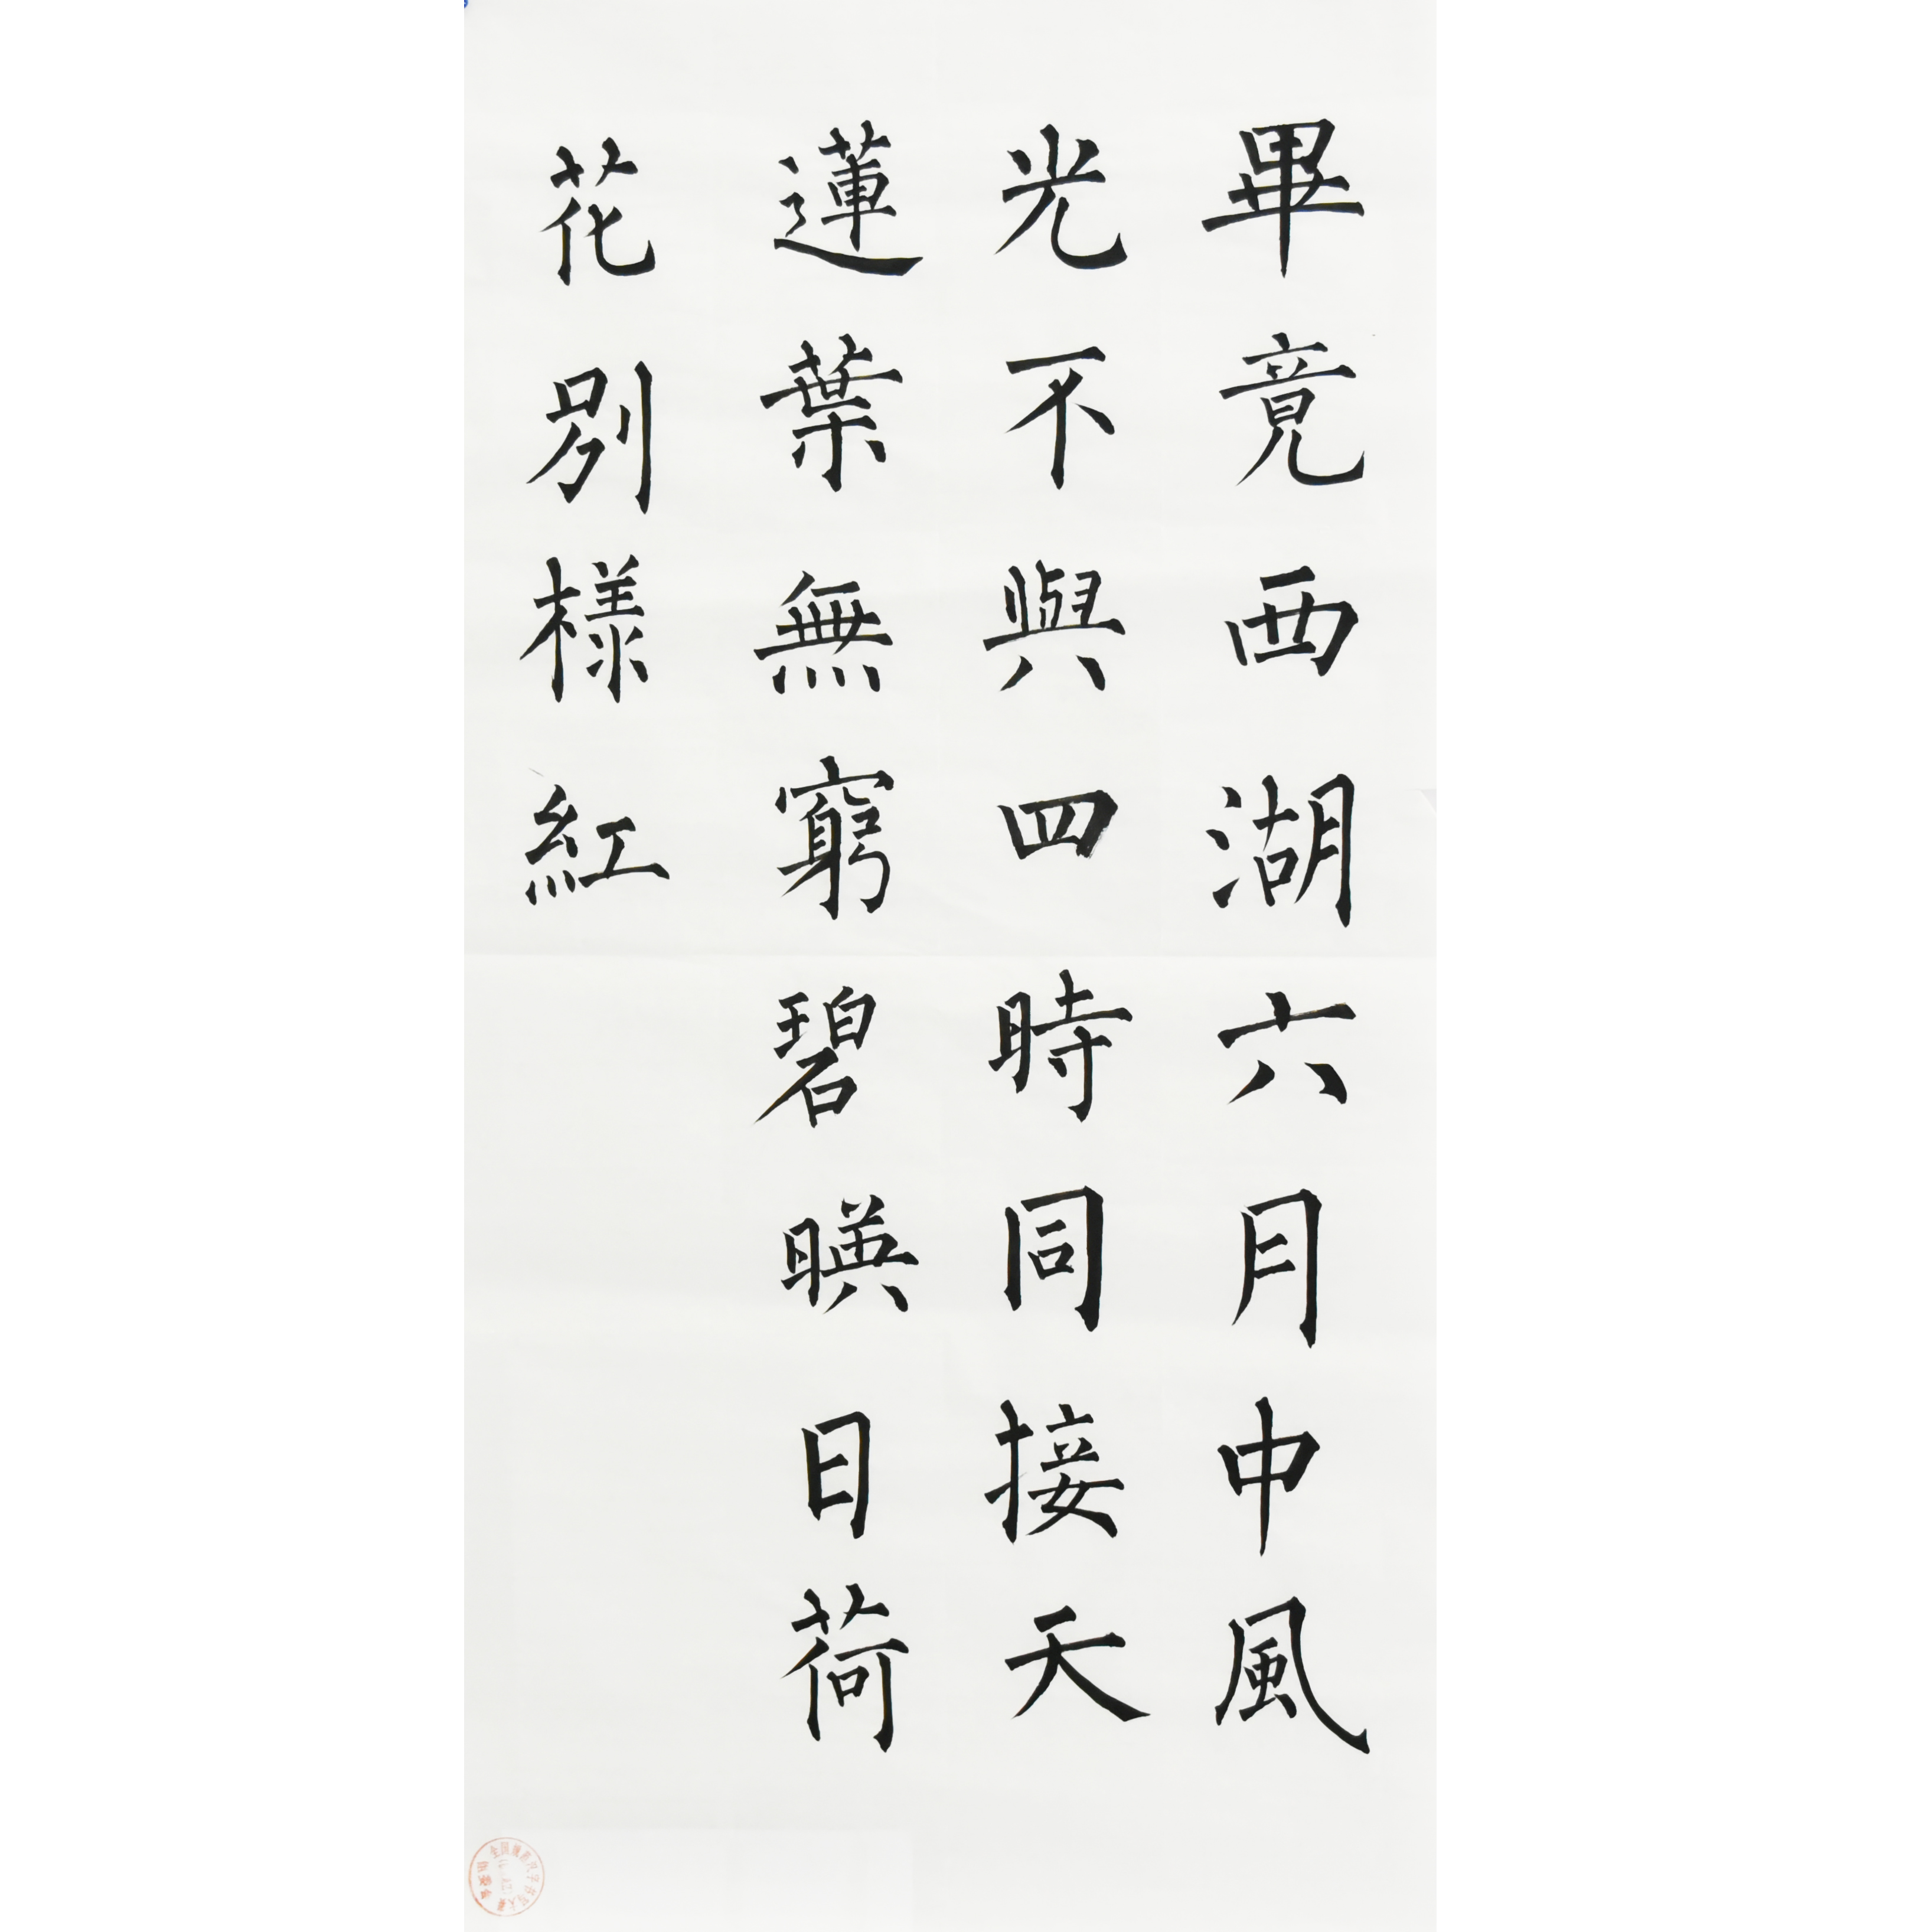 畢竟西湖六月中風
光不與四時同接天
蓮葉無窮碧暎日荷
花别樣紅